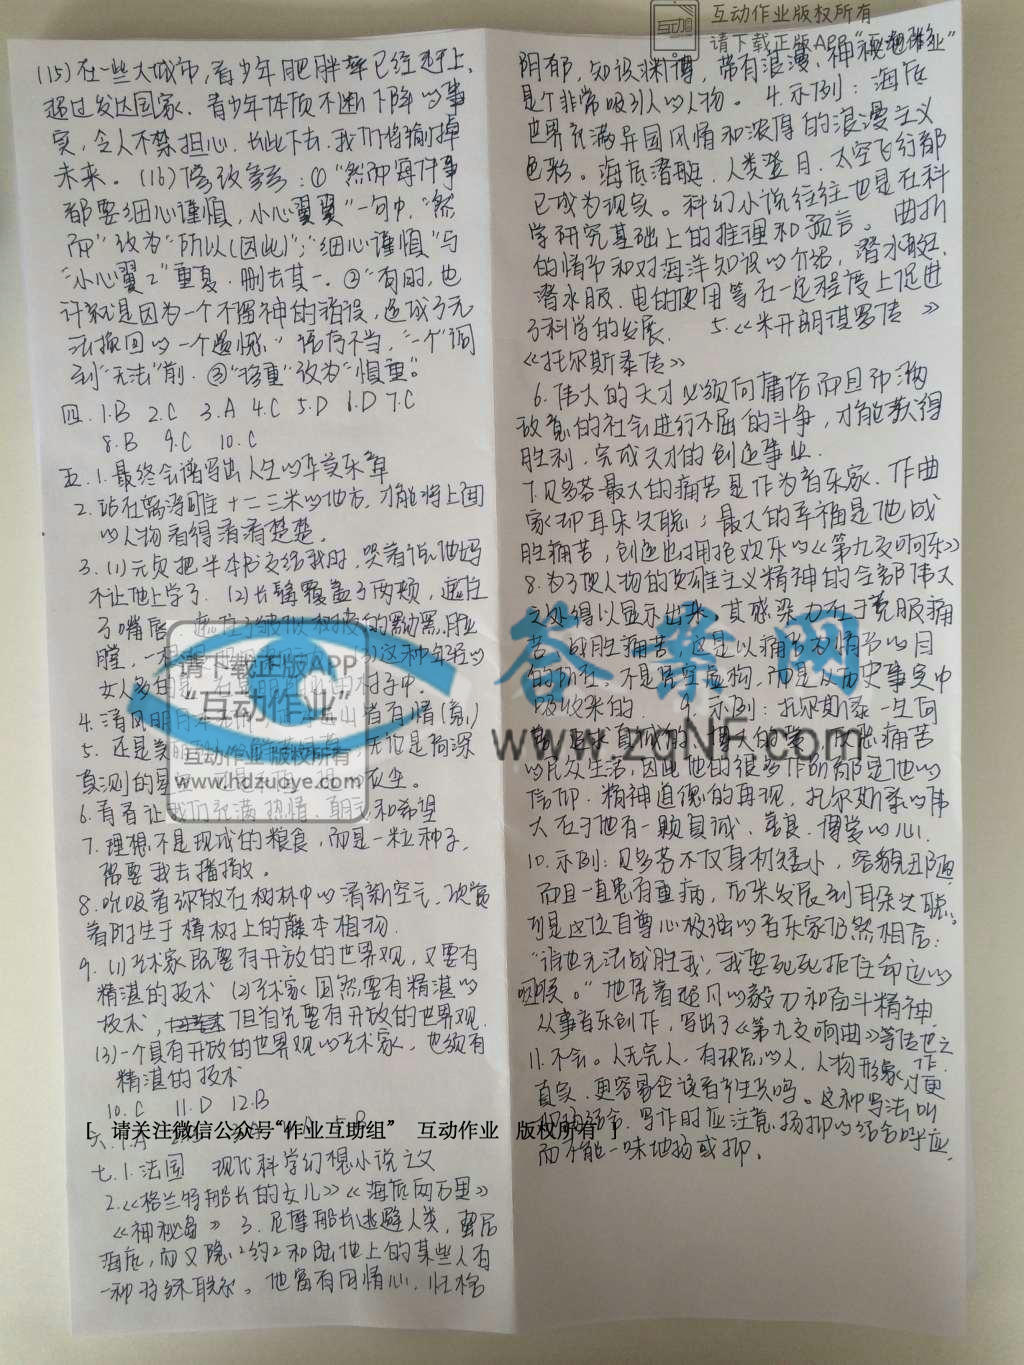 互动作业版权所有
(15)在一些大城市,青少年肥胖率已经赶上、
超过发达国家.青少年体质不断下降的事
实,令人不禁担心.长此下去,我们将输掉
未来。(16)修改答案:①"然而每件事
都要细心谨慎,小心翼翼"一句中,"然
而"改为"所以(因此)";"细心谨慎"与
"小心翼2"重复.删去其一.②"有时,也
许就是因为一个不留神的错误,造成了无
法挽回的一个遗憾."语序不当,"一个"调
到"无法"前.③"稳重"改为"慎重"。
四.1.B 2.C 3.A 4.C 5.D 6.D 7.C
8.B 9.C 10.C
五.1.最终会谱写出人生的华美乐章
2.站在离浮雕 十二三米的地方,才能将上面
的人物看得清清楚楚.
3.(1)元贞把半本书交给我时,哭着说他妈
不让他上学了.(2)长髯覆盖了两颊,遮住
了嘴唇
女人多
4.清风明月本无 山皆有情
5.还是美 无论是高深
莫测的星
6.青春让我们充满热情、朝气和希望
7.理想不是现成的粮食,而是一粒种子,
需要我去播撒。
8.呼吸着弥散在树林中的清新空气,欣赏
着附生于樟树上的藤本植物.
9.(1)艺术家既要有开放的世界观,又要有
精湛的技术 (2)艺术家固然要有精湛的
技术,但首先要有开放的世界观.
(3)一个具有开放的世界观的艺术家,也须有
精湛的技术
10.C 11.D 12.B
[ 请关注微信公众号"作业互助组" 互动作业 版权所有 ]
七.1.法国 现代科学幻想小说之父
2.《格兰特船长的女儿》《海底两万里》
《神秘岛》 3.尼摩船长逃避人类,蛰居
海底,而又隐2约2和陆地上的某些人有
一种 联系。他富有同情心,性格
阴郁,知识渊博,带有浪漫、神秘色彩,
是个非常吸引人的人物。4.示例:海底
世界充满异国风情和浓厚的浪漫主义
色彩。海底潜艇、人类登月、太空飞行都
已成为现实。科幻小说往往也是在科
学研究基础上的推理和预言。曲折
的情节和对海洋知识的介绍,潜水艇、
潜水服、电的使用等在一定程度上促进
了科学的发展. 5.《米开朗琪罗传》
《托尔斯泰传》
6.伟大的天才必须向庸俗而且卑鄙
敌意的社会进行不屈的斗争,才能获得
胜利,完成天才的创造事业.
7.贝多芬最大的痛苦是作为音乐家、作曲
家却耳朵失聪;最大的幸福是他战
胜痛苦,创造出拥抱欢乐的《第九交响乐》
8.为了使人物的英雄主义精神的全部伟大
之处得以显示出来.其感染力在于克服痛
苦、战胜痛苦.这是以痛苦为情节的目
的所在.不是凭空虚构,而是从历史事实中
吸收来的. 9.示例:托尔斯泰一生向
的民众生活,因此他的很多作品都是他的
信仰、精神道德的再现,托尔斯泰的伟
大在于他有一颗真诚、善良、博爱的心.
10.示例:贝多芬不仅身材矮小,容貌丑陋,
而且一直患有重病,后来发展到耳朵失聪。
可是这位自尊心极强的音乐家仍然相信:
"谁也无法战胜我,我要死死扼住命运的
咽喉。"他凭着超凡的毅力和奋斗精神
从事音乐创作,写出了《第九交响曲》等传世之作
11.不会。人无完人,有缺点的人,人物形象才更
真实,更容易使读者产生共鸣。这种写法叫
扬抑结合,写作时应注意扬抑的结合呼应,
而不能一味地扬或抑.
请下载正版APP
"互动作业"
互动作业 版权所有
www.hdzuoye.com
答案网
www.zqNF.com